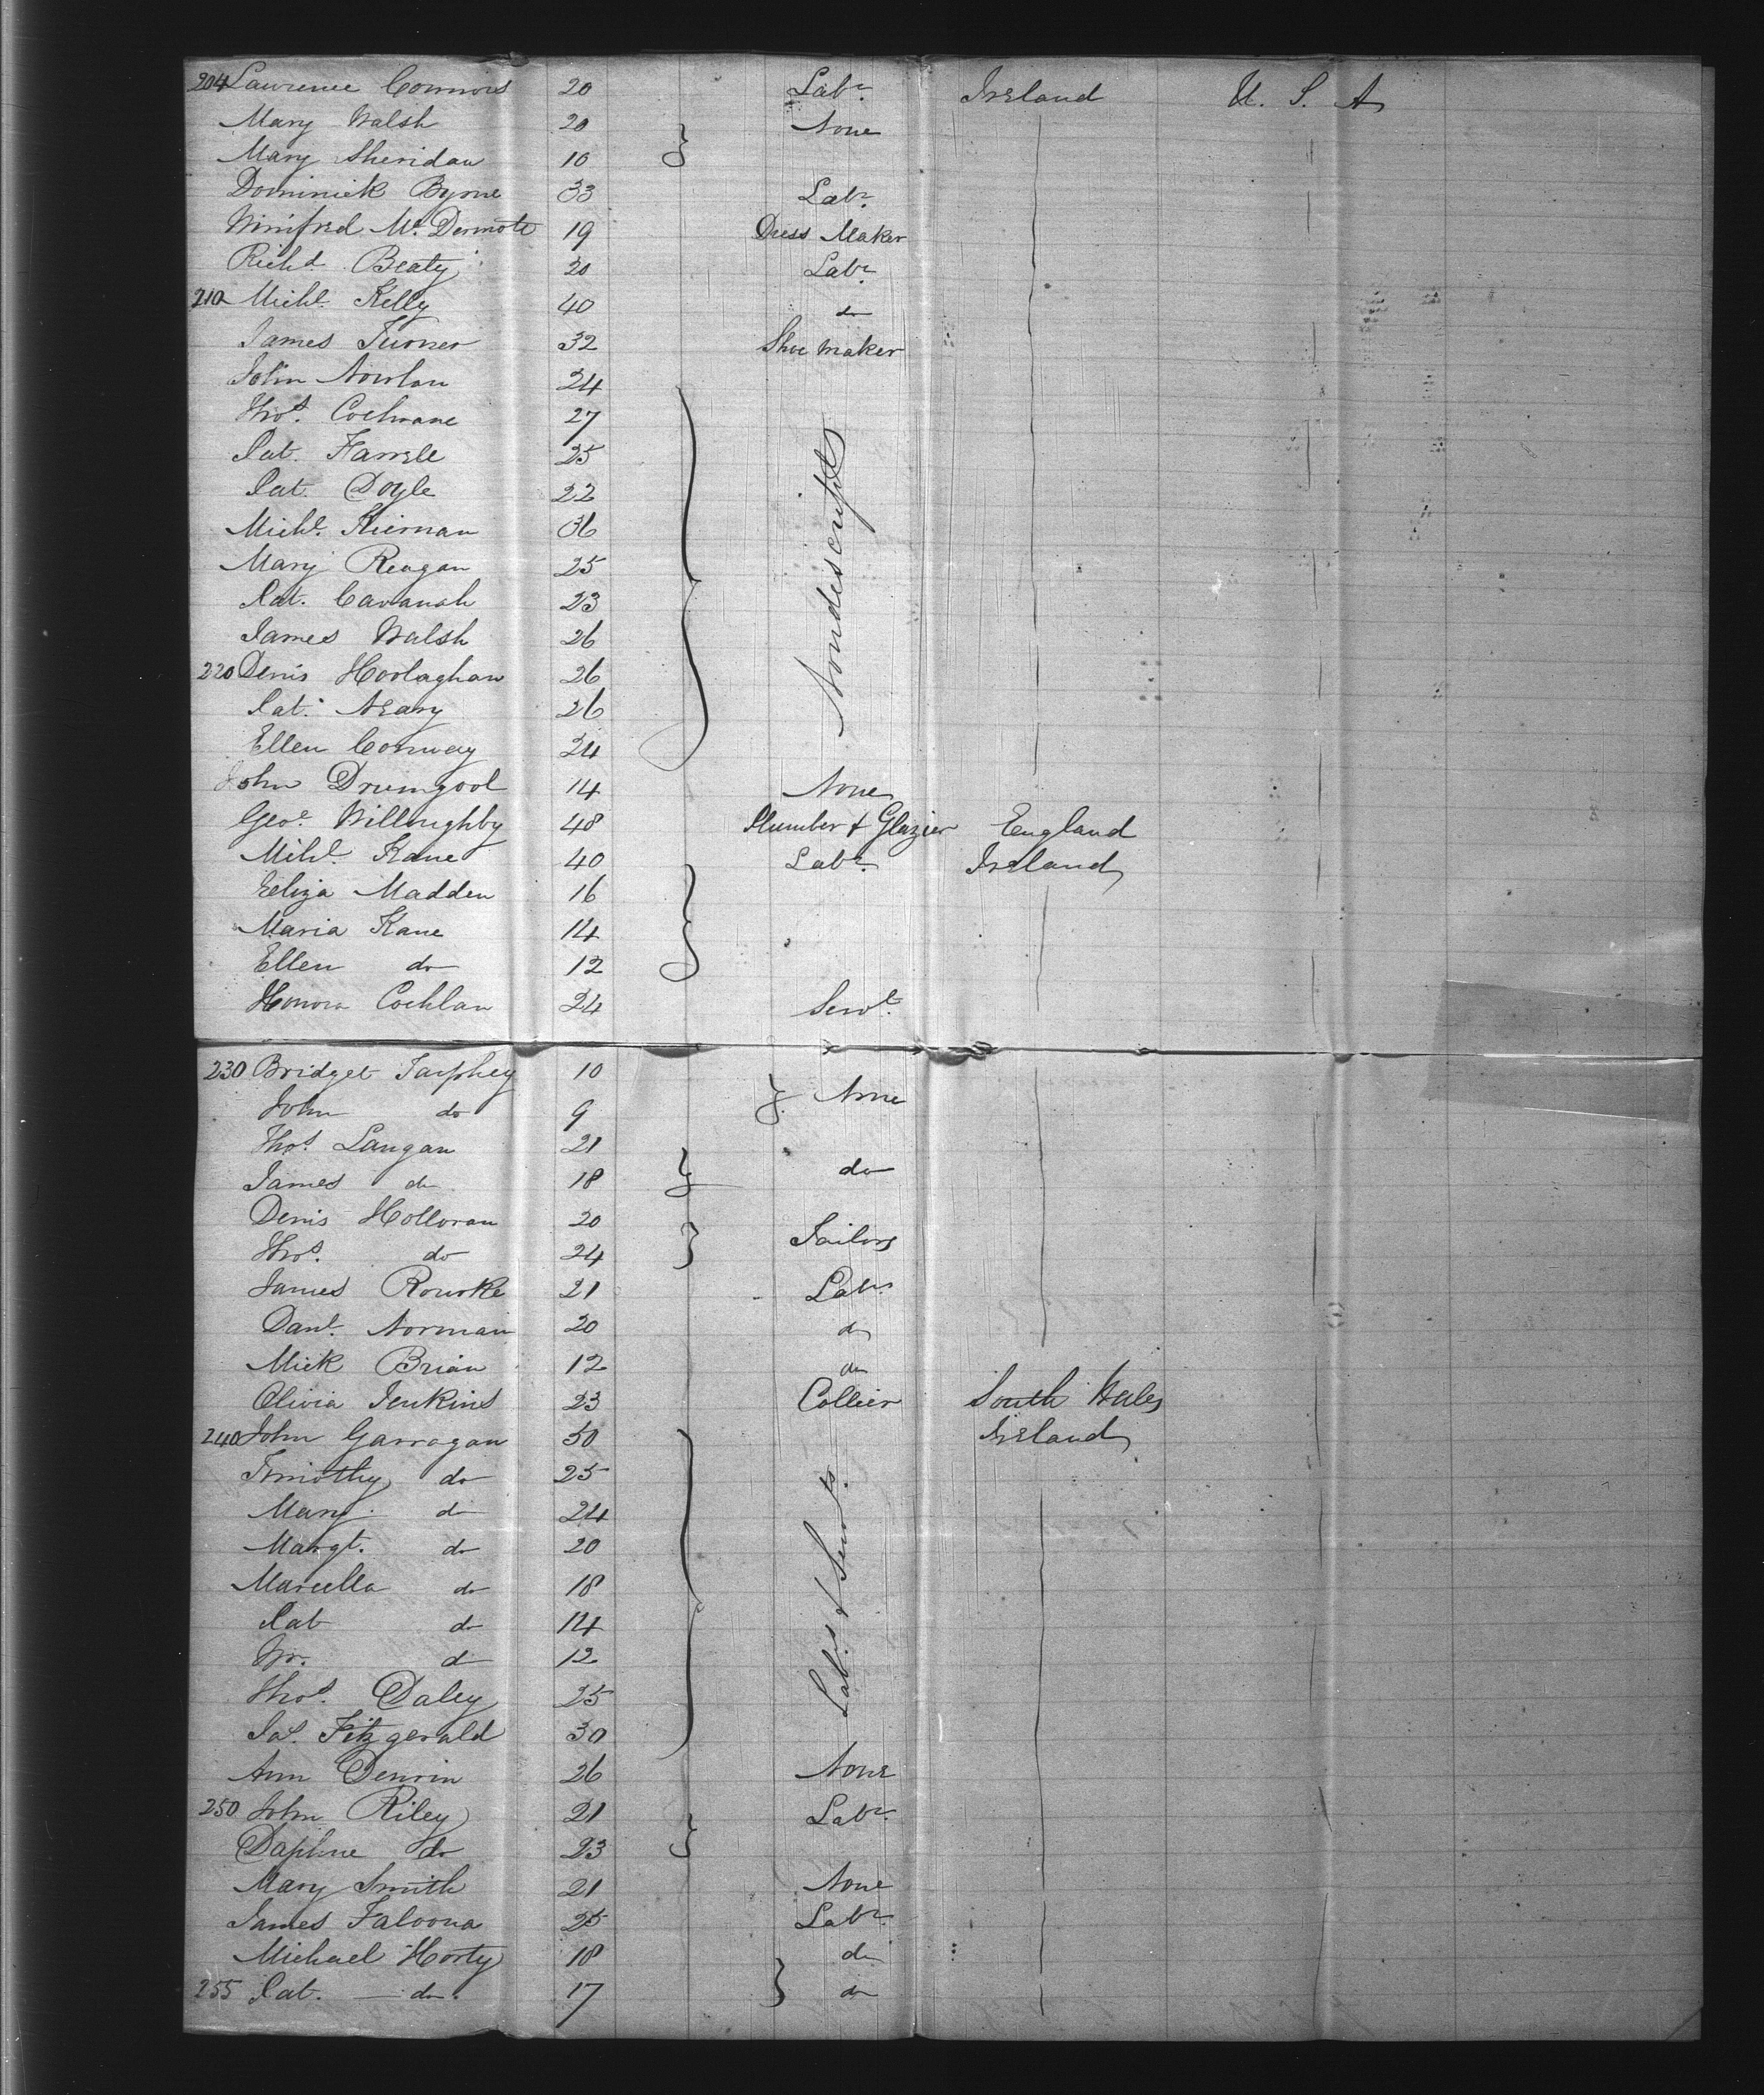 204 Lawrence Connors 20 Labr. Ireland U. S. A
Mary Walsh 20 None
Mary Sheridan 10
Dominick Byrne 33 Labr.
Winifred Mc. Dermott 19 Dress Maker
Richd. Beaty 20 Labr.
210 Michl. Kelly 40 do
James Turner 32 Shoe maker
John Nowlan 24
Thos. Cochrane 27
Pat. Farrell 25
Pat. Doyle 22
Michl. Kiernan 36
Mary Reagan 25
Pat. Cavanah 23
James Walsh 26
Nondiscripts
220 Denis Hoolaghan 26
Pat. Neary 26
Ellen Conway 24
John Drumgool 14 None
Geoe. Willoughby 48 Plumber & Glazier England
Mihl. Kane 40 Labr. Ireland
Eeliza Madden 16
Maria Kane 14
Ellen do 12
Honora Cochlan 24 Servt.
230 Bridget Tarphey 10
John do 9 None
Thos. Langan 21
James do 18 do
Denis Holloran 20
Thos. do 24 Tailors
James Rourke 21 Labr.
Danl. Norman 20 do
Mick Brian 12 do
Olivia Jenkins 23 Collier South Wales
240 John Garragan 50 Ireland
Timothy do 25
Mary do 24
Margt. do 20
Marcella do 18
Pat do 14
Wm. do 12
Labrs. & Servts.
Thos. Daley 25
Jas. Fitzgerald 30
Ann Denrin 26 None
250 John Riley 21 Labr.
Daphne do 23
Mary Smith 21 None
James Faloona 25 Labr.
Michael Horty 18 do
255 Pat. — do. 17 do